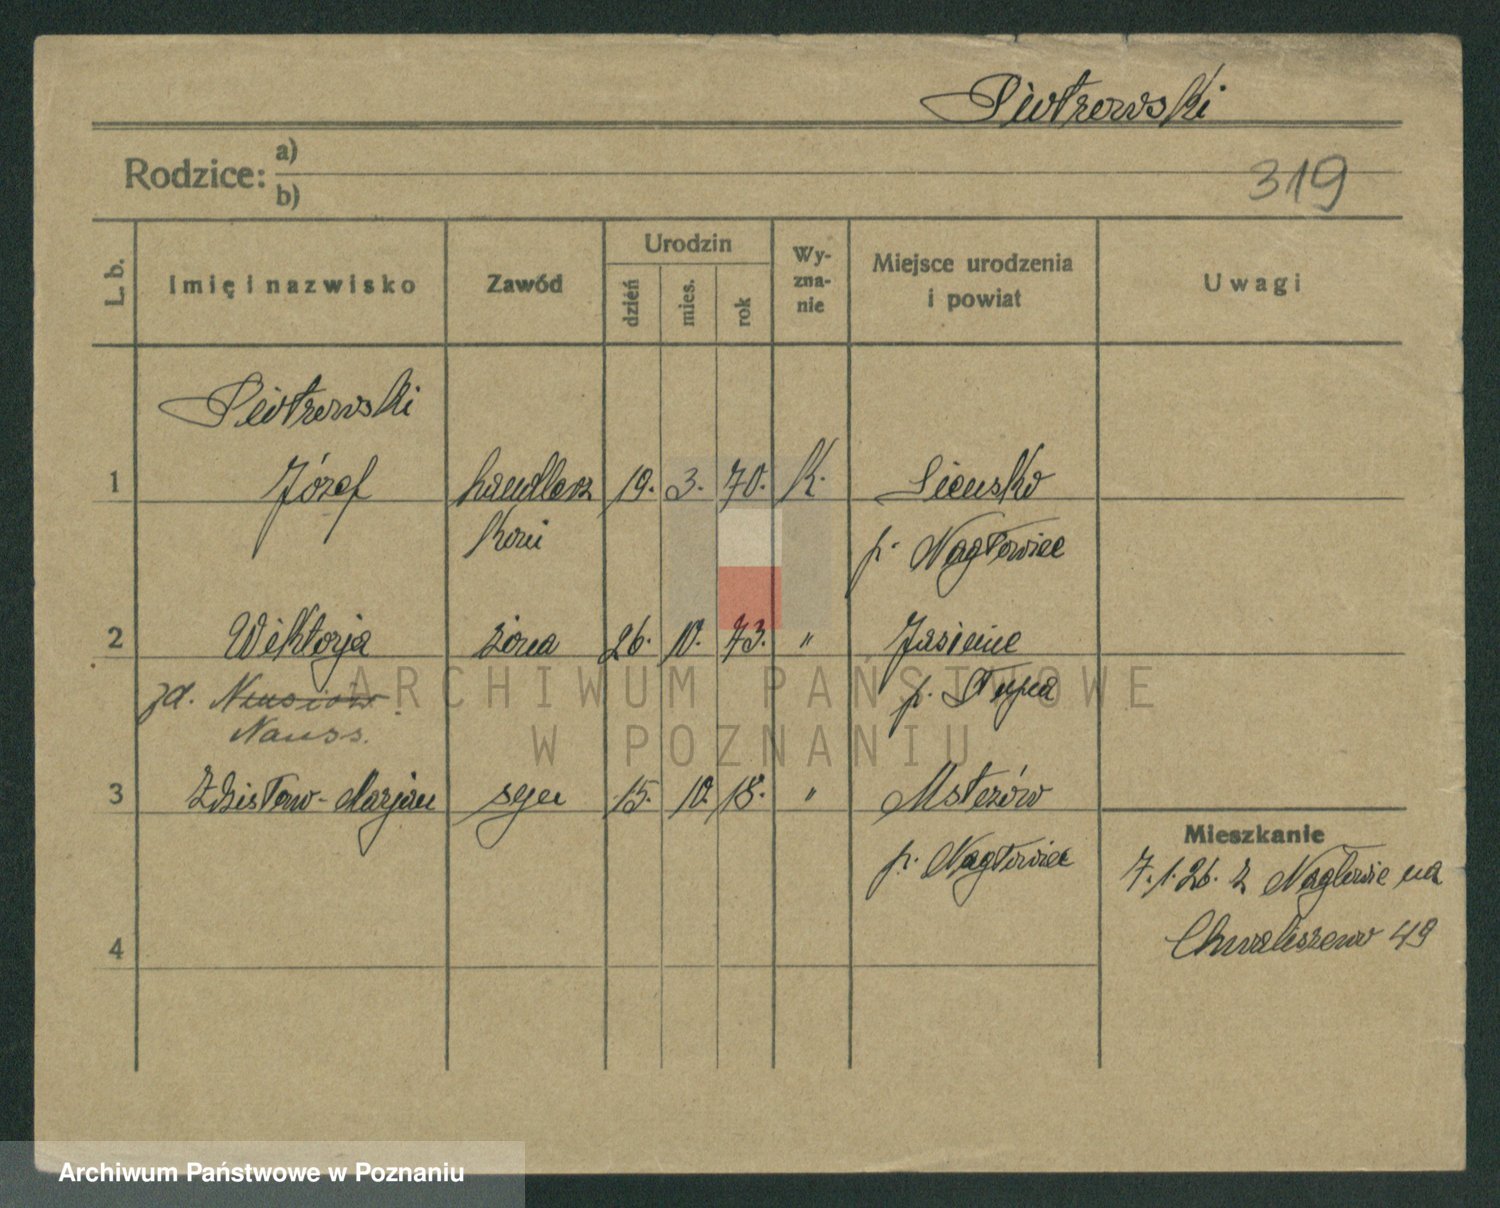 Piotrowski
Rodzice: a)
b)
319
L. b.
Imię i nazwisko
Zawód
Urodzin
dzień
mies.
rok
Wy-
zna-
nie
Miejsce urodzenia
i powiat
Uwagi
Piotrowski
1 Józef handlarz 19. 3. 70. K.
koni p. Nagłowice
2 Wiktorja żona 26. 10. 73. "
zd. p. Stupia
Nauss.
3 Zdzisław-Marjan syn 15. 10. 18. " Mstezów
p. Nagłowice
Mieszkanie
7.1.26. z Nagłowic na
Chwaliszewo 49
4
ARCHIWUM PAŃSTWOWE
W POZNANIU
Archiwum Państwowe w Poznaniu